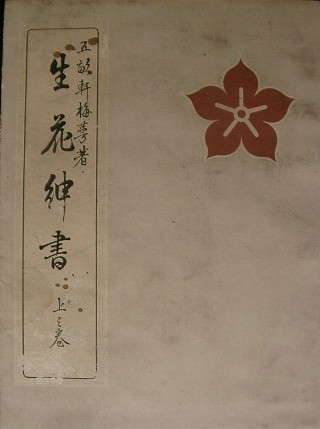 五敬軒梅芳著
生花紳書
上之巻